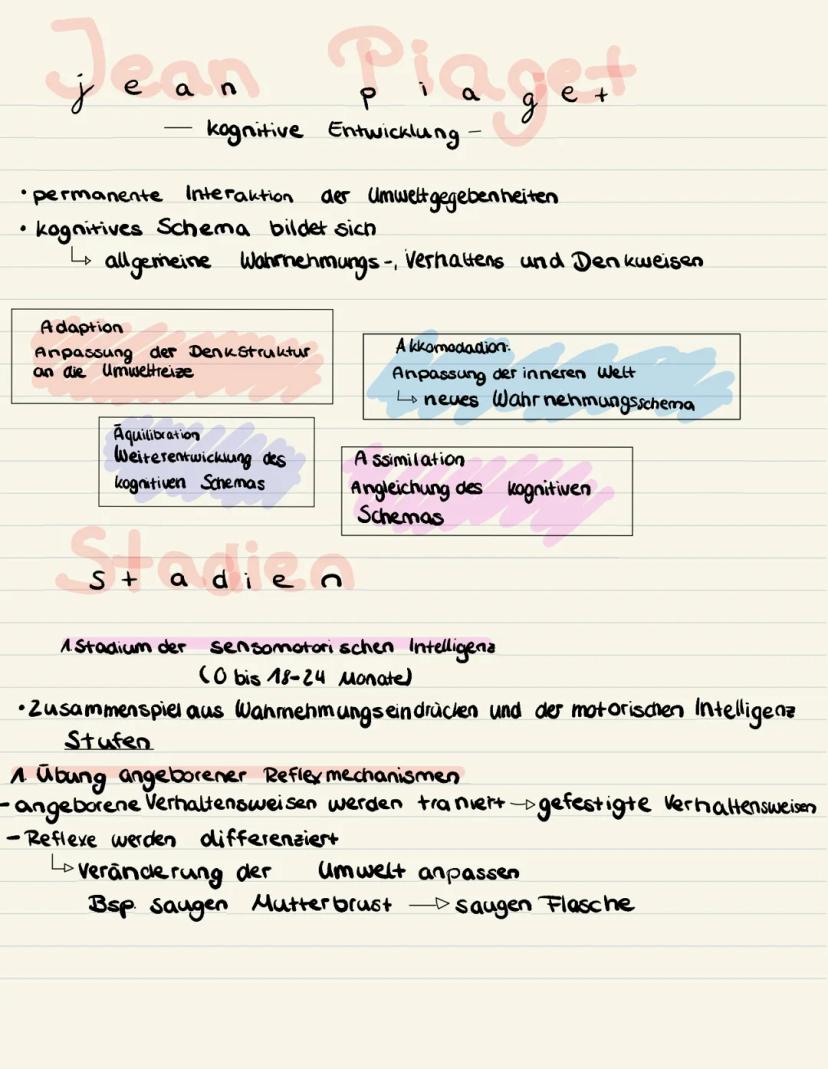 Jean Piaget
jean piaget
— kognitive Entwicklung –
• permanente Interaktion der Umweltgegebenheiten
• kognitives Schema bildet sich
↳ allgemeine Wahrnehmungs-, Verhaltens und Denkweisen
Adaption
Anpassung der Denkstruktur
an die Umweltreize
Akkomodadion.
Anpassung der inneren Welt
↳ neues Wahrnehmungsschema
Äquilibration
Weiterentwicklung des
kognitiven Schemas
Assimilation
Angleichung des kognitiven
Schemas
Stadien
stadien
1. Stadium der sensomotorischen Intelligenz
(0 bis 18-24 Monate)
• Zusammenspiel aus Wahrnehmungseindrücken und der motorischen Intelligenz
Stufen
1. Übung angeborener Reflexmechanismen
- angeborene Verhaltensweisen werden traniert → gefestigte Verhaltensweisen
- Reflexe werden differenziert
↳ Veränderung der Umwelt anpassen
Bsp. saugen Mutterbrust → saugen Flasche